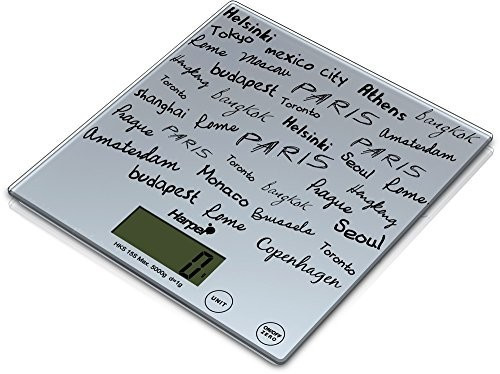 Helsinki
Tokyo mexico city Athens Bangkok
Rome Moscow PARIS Amsterdam
Hongkong budapest Toronto PARIS
Toronto Bangkok Helsinki Seoul Rome
shanghai Rome PARIS Prague Hongkong
Prague PARIS Toronto Bangkok Seoul
Amsterdam Monaco Brussels Toronto
budapest Rome Copenhagen
Harper
0
HKS 15S Max. 5000g d=1g
UNIT
ON/OFF
ZERO